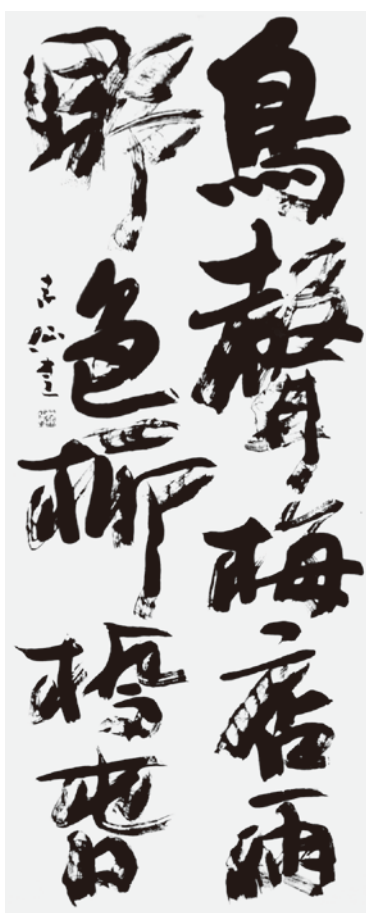 鳥聲梅店雨
野色柳橋旾